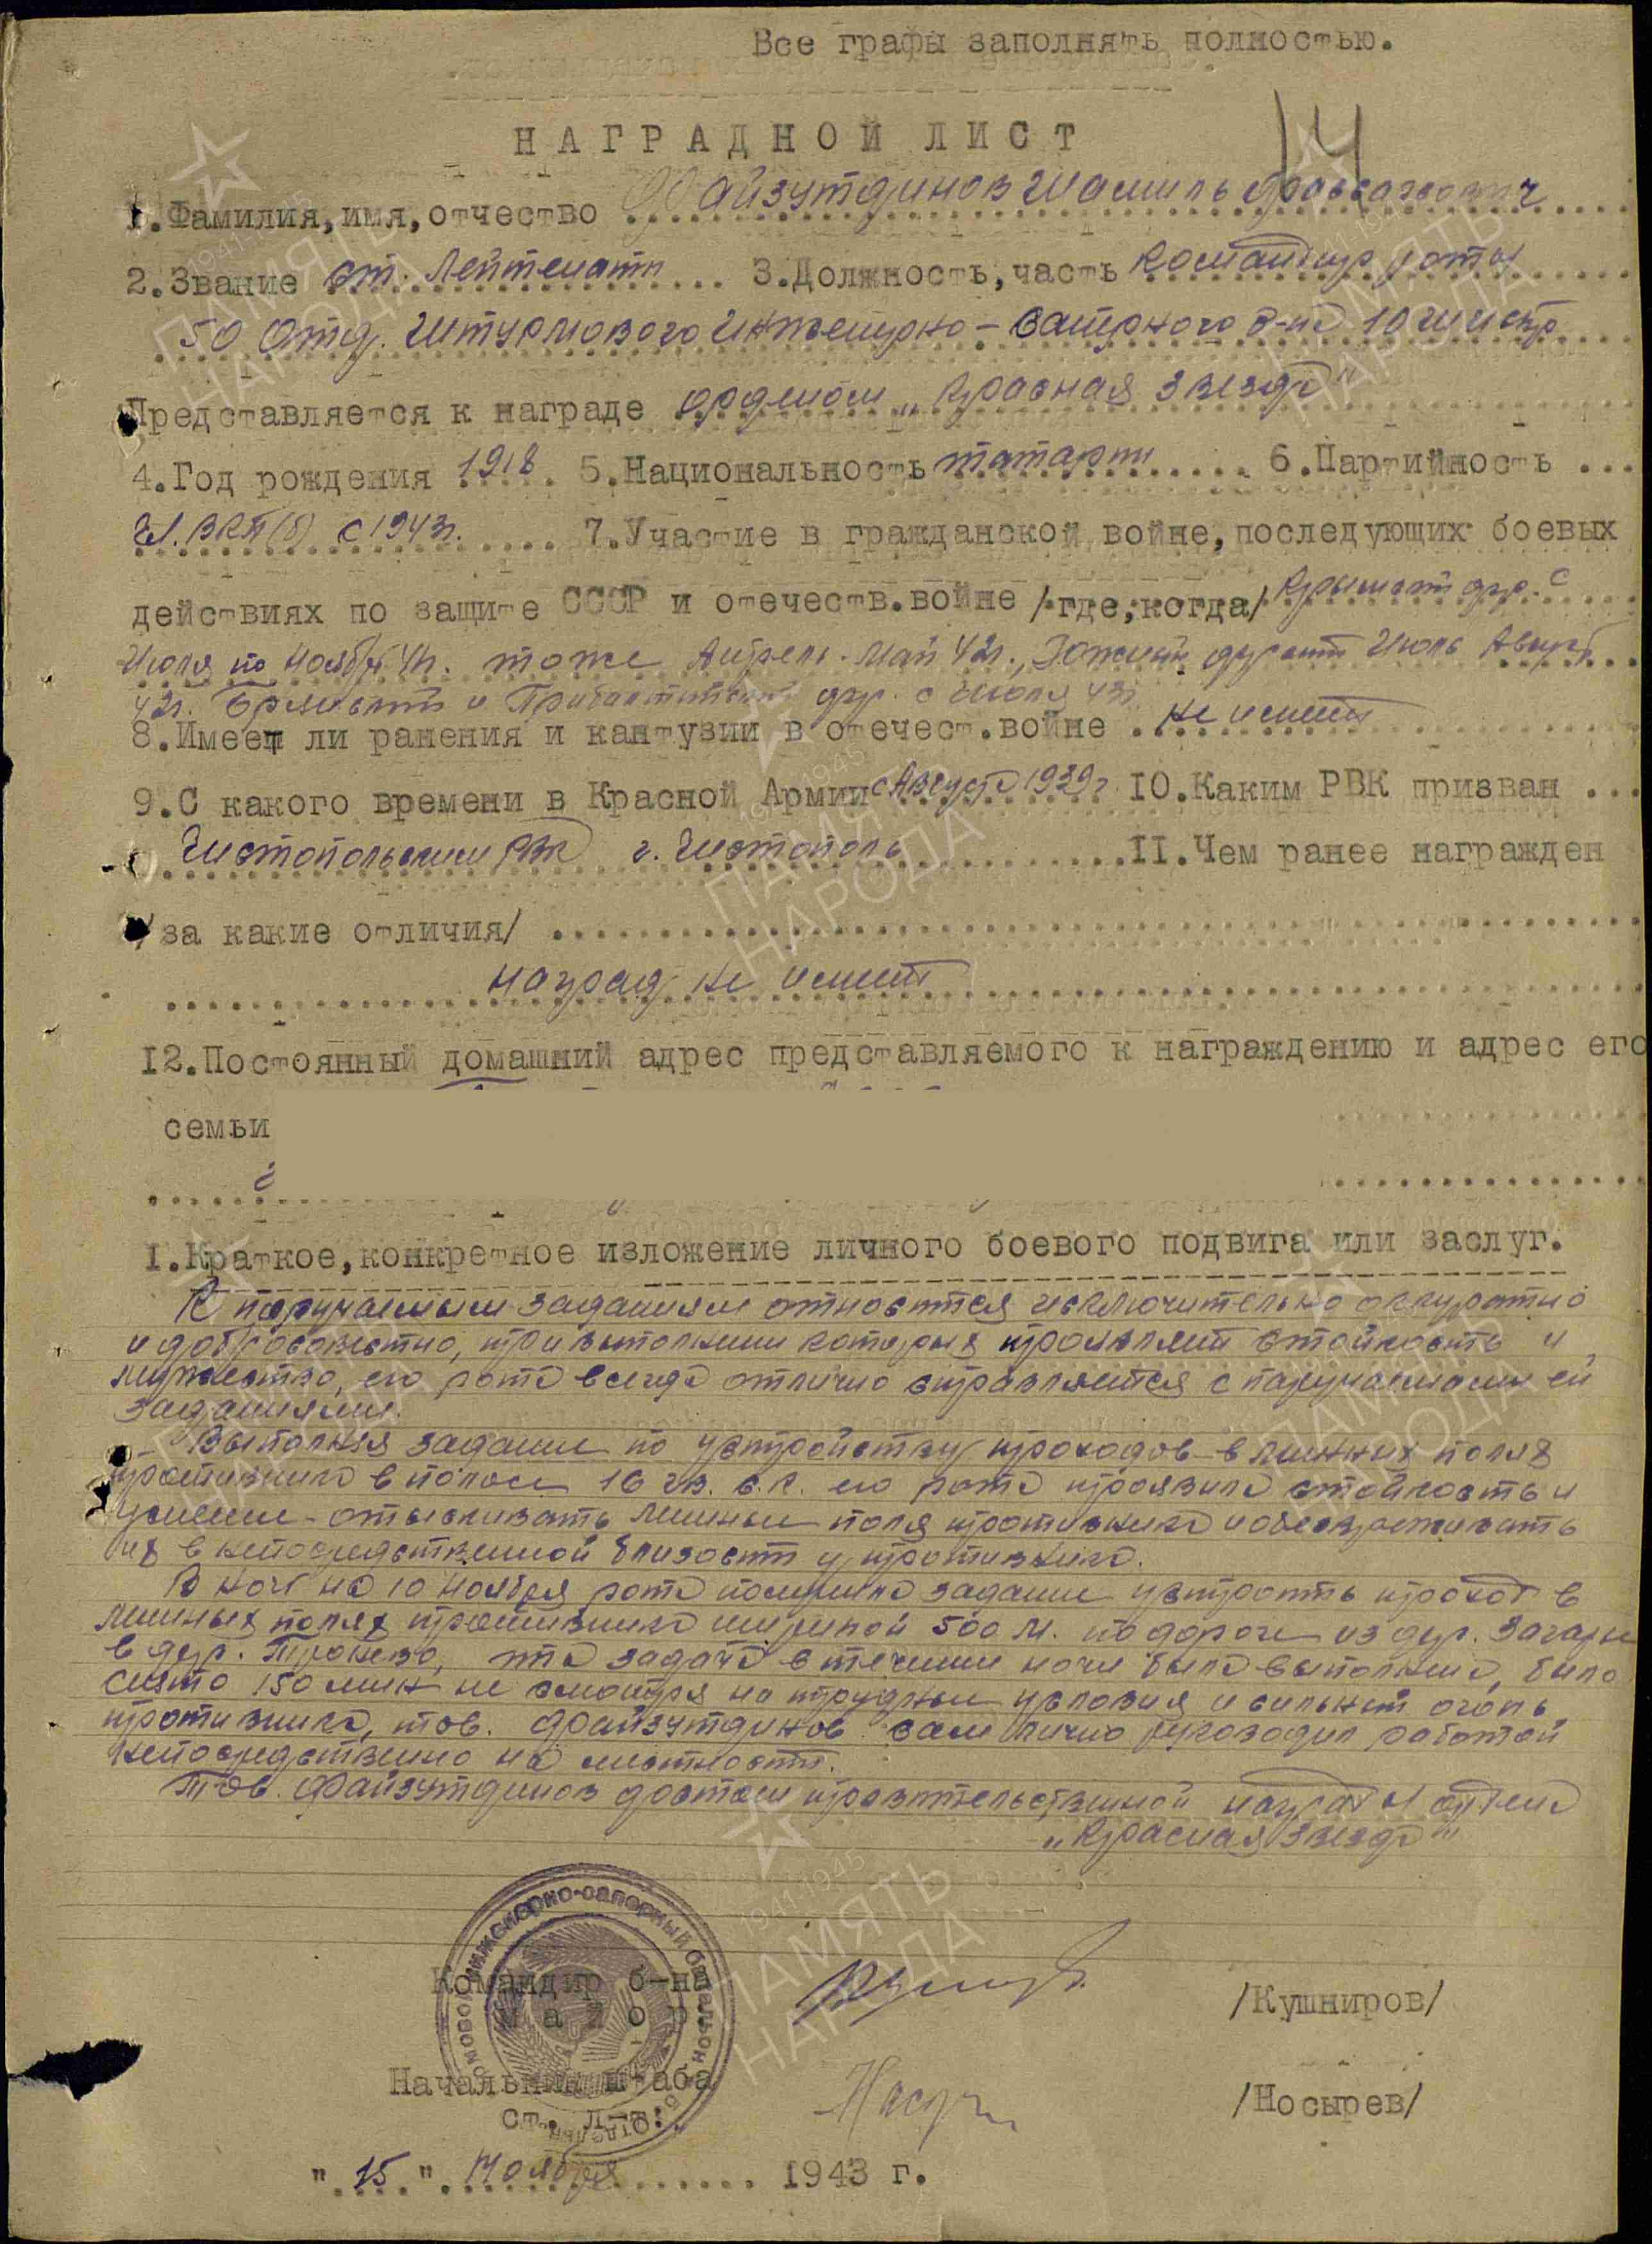 Все графы заполнять полностью.
14
НАГРАДНОЙ ЛИСТ
1.Фамилия,имя,отчество Файзутдинов Шамиль
2.Звание ст. Лейтенант 3.Должность,часть Командир роты
50 Отд. Штурмового Инженерно-Саперного б-на 10 шисбр
Представляется к награде орденом „Красная звезда"
4.Год рождения 1918 5.Национальность татарин 6.Партийность ...
Чл. ВКП(б) с 1943г. 7.Участие в гражданской войне,последующих боевых
действиях по защите СССР и отечеств.войне /где,когда/ Крымский фр. с
Июля по Ноябрь 41г. тоже Апрель-Май 42г., Южный фронт Июль Август
42г. Брянский и Прибалтийский фр. с Июля 43г.
8.Имеет ли ранения и кантузии в отечест.войне не имеет
9.С какого времени в Красной Армии с Августа 1939г 10.Каким РВК призван ...
Чистопольским РВК г. Чистополь 11.Чем ранее награжден
/за какие отличия/
наград не имеет
12.Постоянный домашний адрес представляемого к награждению и адрес его
семьи
1.Краткое,конкретное изложение личного боевого подвига или заслуг.
К поручаемым заданиям относится исключительно аккуратно
и добросовестно, при выполнении которых проявляет стойкость и
мужество, его рота всегда отлично справляется с поручаемыми ей
заданиями.
Выполняя задание по устройству проходов в минных полях
противника в полосе 16 гв. с.к. его рота проявила стойкость и
умение отыскивать минные поля противника и обезвреживать
их в непосредственной близости у противника.
В ночь на 10 ноября рота получила задание устроить проход в
минных полях противника шириной 500 м. по дороге из дер.
в дер. эта задача в течении ночи была выполнена, было
снято 150 мин не смотря на трудные условия и сильный огонь
противника, тов. Файзутдинов сам лично руководил работой
непосредственно на местности.
Тов. Файзутдинов достоин правительственной награды ордена
„Красная звезда"
Командир б-на
майор /Кушниров/
Начальник штаба
ст. л-т: /Носырев/
"15" Ноября 1943 г.
инженерно-саперный батальон
ПАМЯТЬ НАРОДА
1941-1945